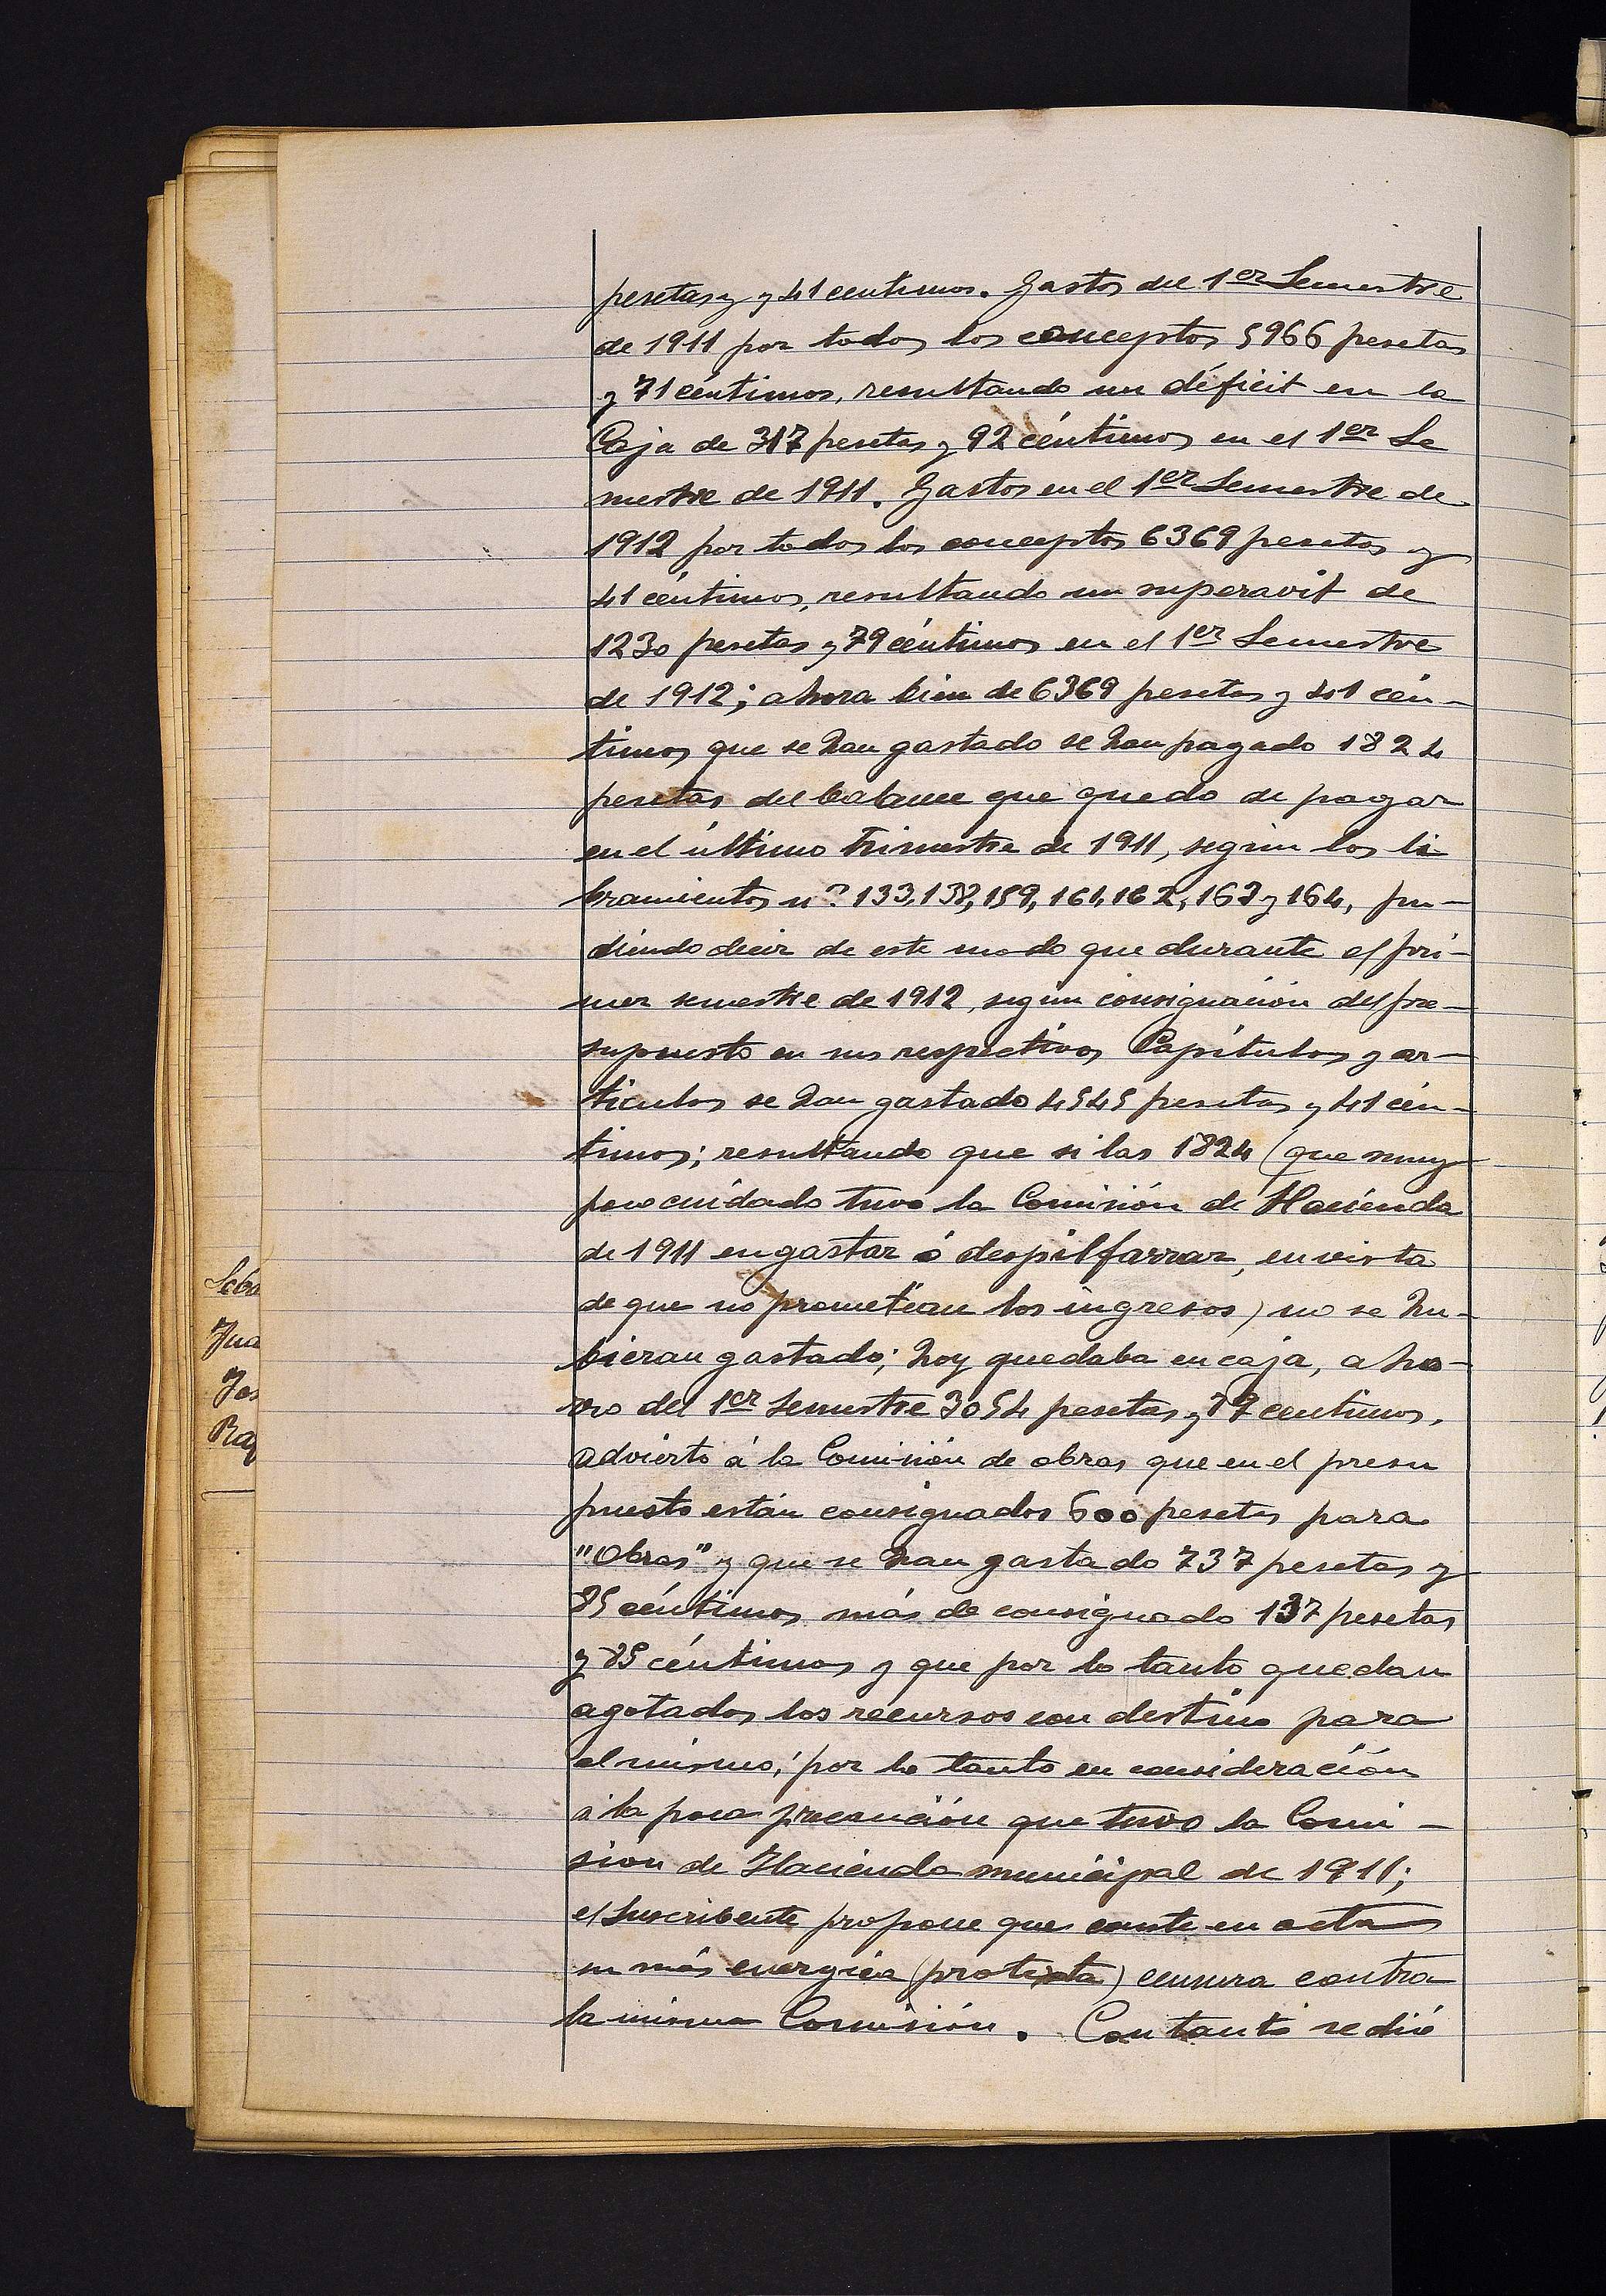 pesetas y 41 centimos. Gastos del 1er Semestre
de 1911 por todos los conceptos 5966 pesetas
y 71 céntimos, resultando un déficit en la
Caja de 317 pesetas y 92 céntimos en el 1er Se
mestre de 1911. Gastos en el 1er Semestre de
1912 por todos los conceptos 6369 pesetas y
41 céntimos, resultando un superavit de
1230 pesetas y 79 céntimos en el 1er Semestre
de 1912; ahora bien de 6369 pesetas y 41 cén-
timos que se han gastado se han pagado 1824
pesetas del balance que quedo de pagar
en el último trimestre de 1911, según los li
bramientos nº 133, 138, 159, 161, 162, 163 y 164, pu-
diendo decir de este modo que durante el pri-
mer semestre de 1912, según consignación del pre-
supuesto en sus respectivos Capítulos y ar-
tículos se han gastado 4545 pesetas y 41 cén-
timos; resultando que si las 1824 (que muy
poco cuidado tuvo la Comisión de Hacienda
de 1911 en gastar ó despilfarrar, en vista
de que no prometían los ingresos) no se hu-
bieran gastado; hoy quedaba en caja, aho-
rro del 1er Semestre 3054 pesetas y 79 centimos.
advierto á la Comisión de obras que en el presu
puesto están consignados 600 pesetas para
"Obras" y que se han gastado 737 pesetas y
85 céntimos más de consignado 137 pesetas
y 85 céntimos y que por lo tanto quedan
agotados los recursos con destino para
el mismo; por lo tanto en consideración
á la poca precaución que tuvo la Comi-
sion de Hacienda municipal de 1911;
el Suscribente propone que conste en acta
su más energica (protesta) censura contra
la misma Comisión. Con tanto se dió
Jua